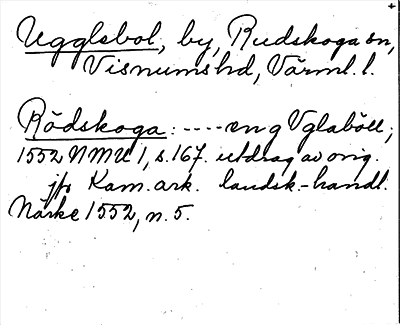 Ugglsbol, by, Rudskoga sn,
Visnums hd, Värml. l.
Rödskoga: ---- en g Vglaböll;
1552 NMU 1, s. 167. utdrag av orig.
jfr Kam. ark. landsk.-handl.
Närke 1552, n. 5.